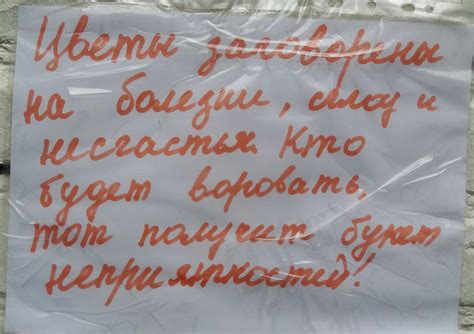 Цветы заговорены
на болезни, слёз и
несчастья. Кто
будет воровать,
тот получит букет
неприятностей!